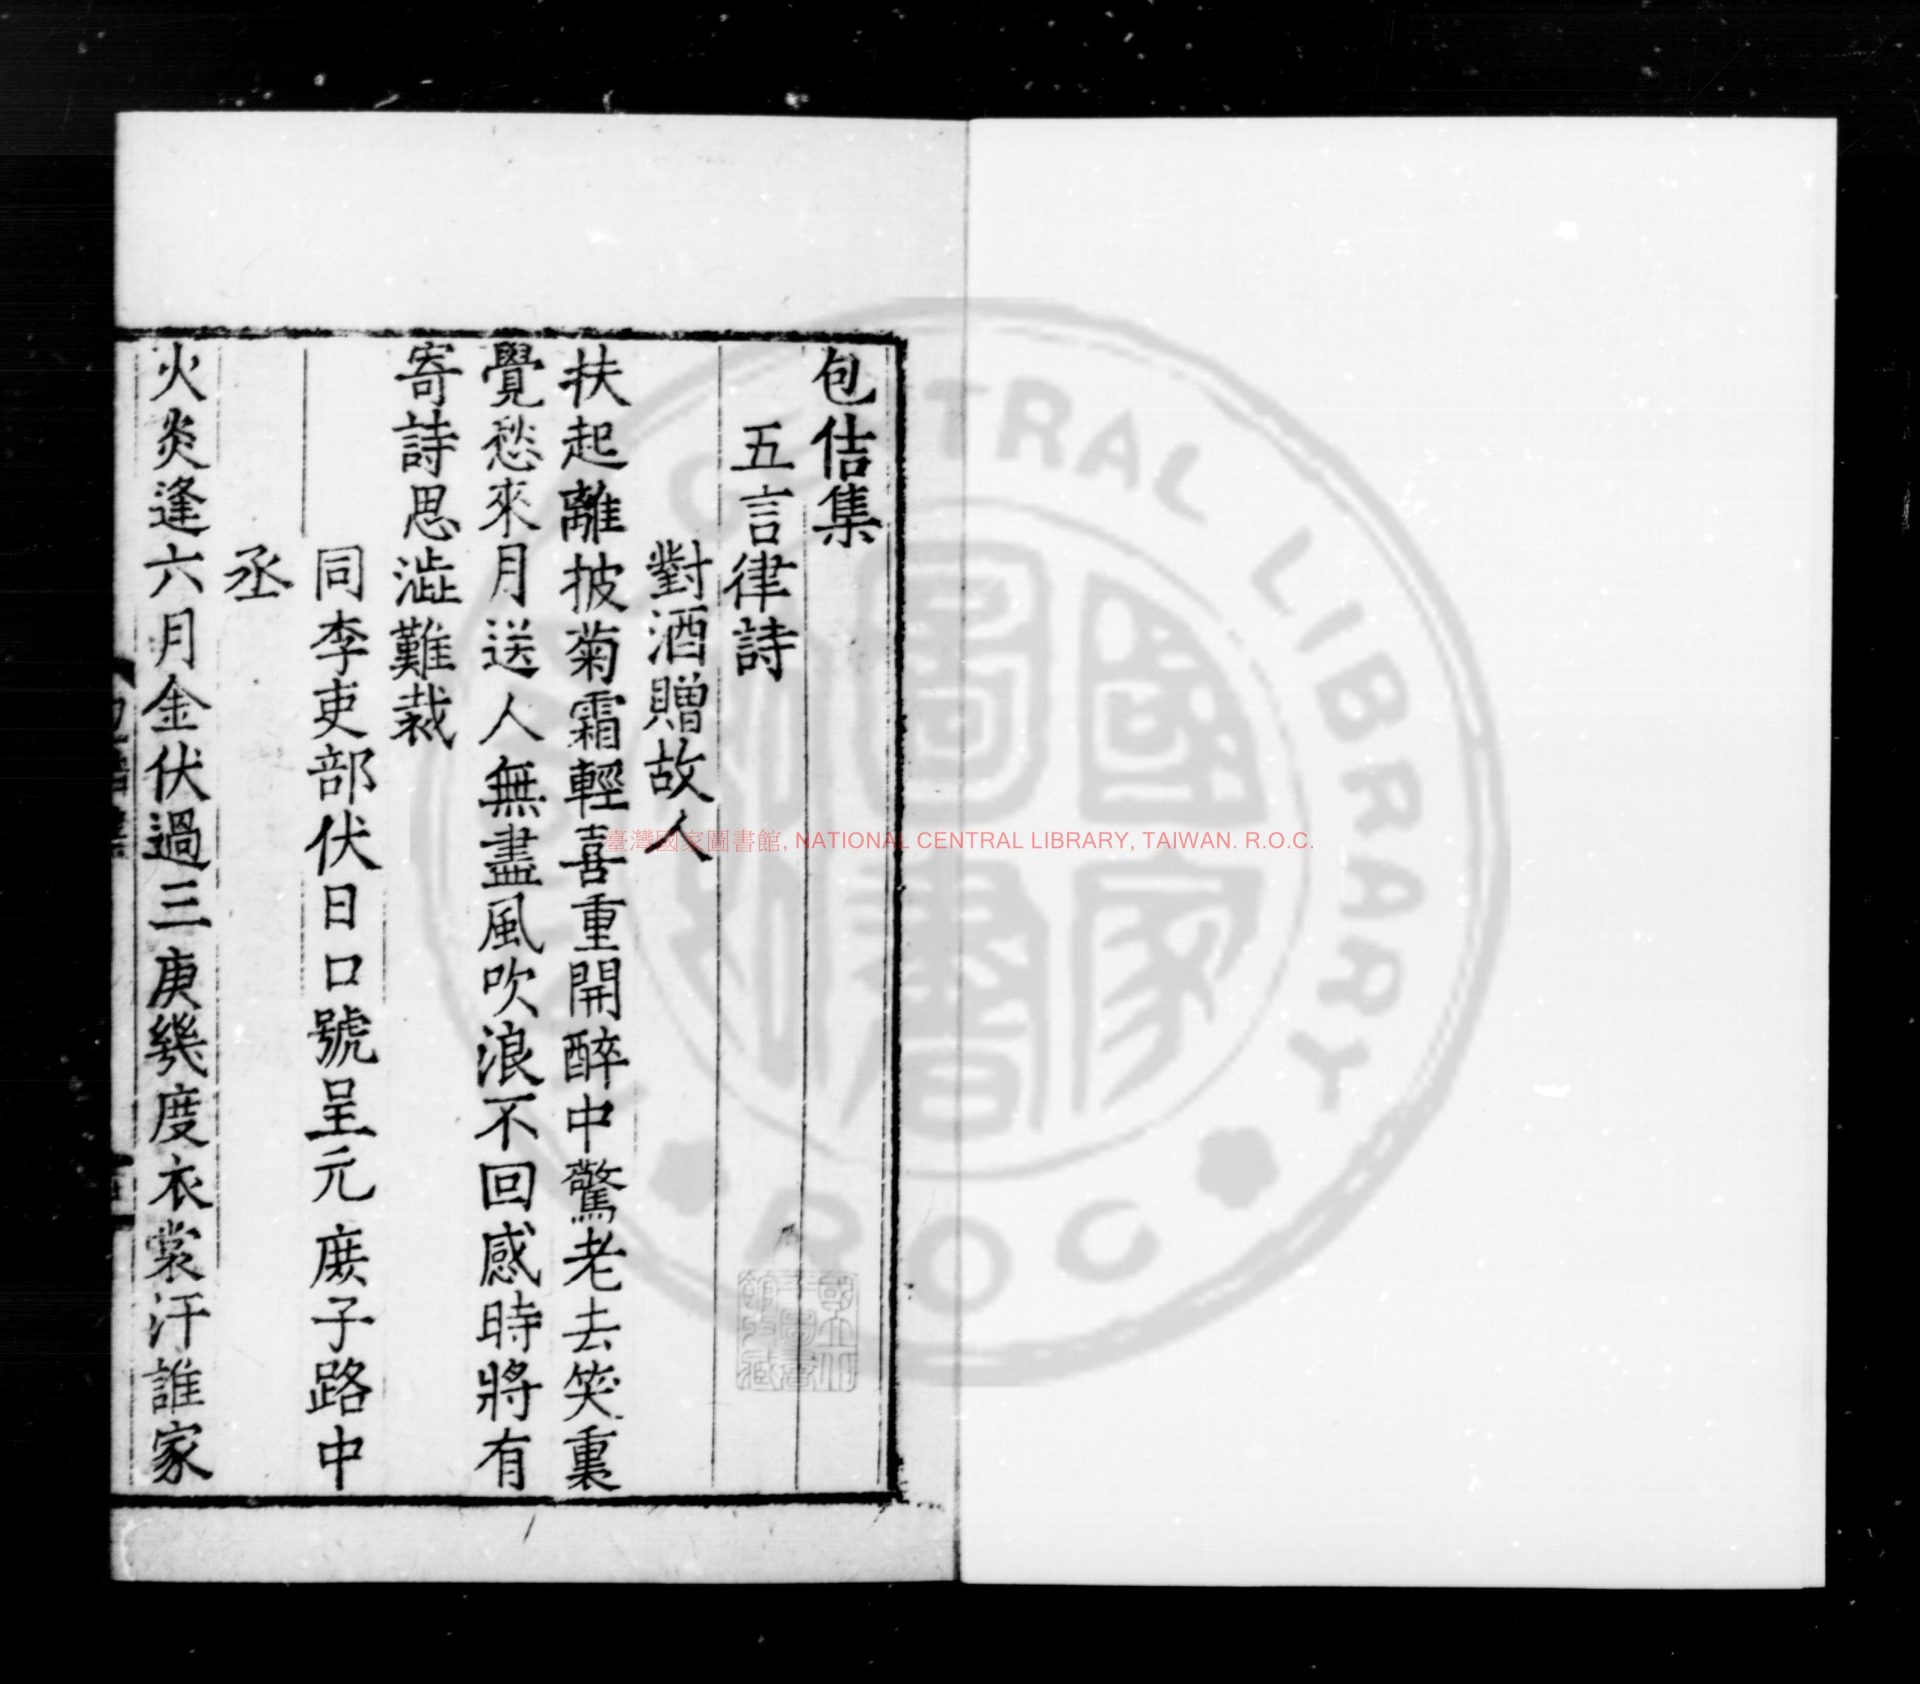 包佶集
五言律詩
對酒贈故人
扶起離披菊霜輕喜重開醉中驚老去笑裏
覺愁來月送人無盡風吹浪不回感時將有
寄詩思澁難裁
同李吏部伏日口號呈元庻子路中
丞
火炎逢六月金伏過三庚幾度衣裳汗誰家
臺灣國家圖書館, NATIONAL CENTRAL LIBRARY, TAIWAN. R.O.C.
CENTRAL LIBRARY
國家圖書
R O C